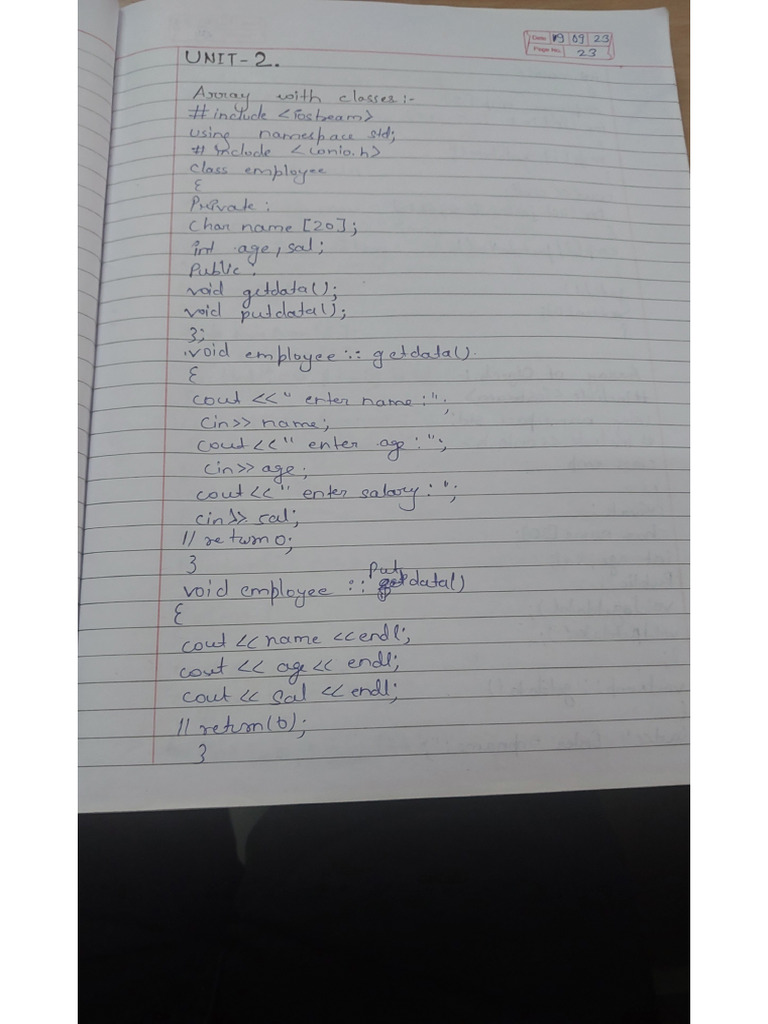 Date 19 09 23
Page No. 23
UNIT-2.
Array with classes:-
#include <iosbeam>
using namespace std;
# include <conio.h>
class employee
{
Private:
Char name [20];
int age, sal;
Public:
void getdata();
void putdata();
};
void employee :: getdata()
{
cout <<" enter name:";
cin>> name;
cout<<" enter age:";
cin>> age;
cout<<" enter salary:";
cin>> sal;
// return 0;
}
void employee :: putdata()
{
cout << name <<endl;
cout << age<< endl;
cout << sal << endl;
// return(0);
}